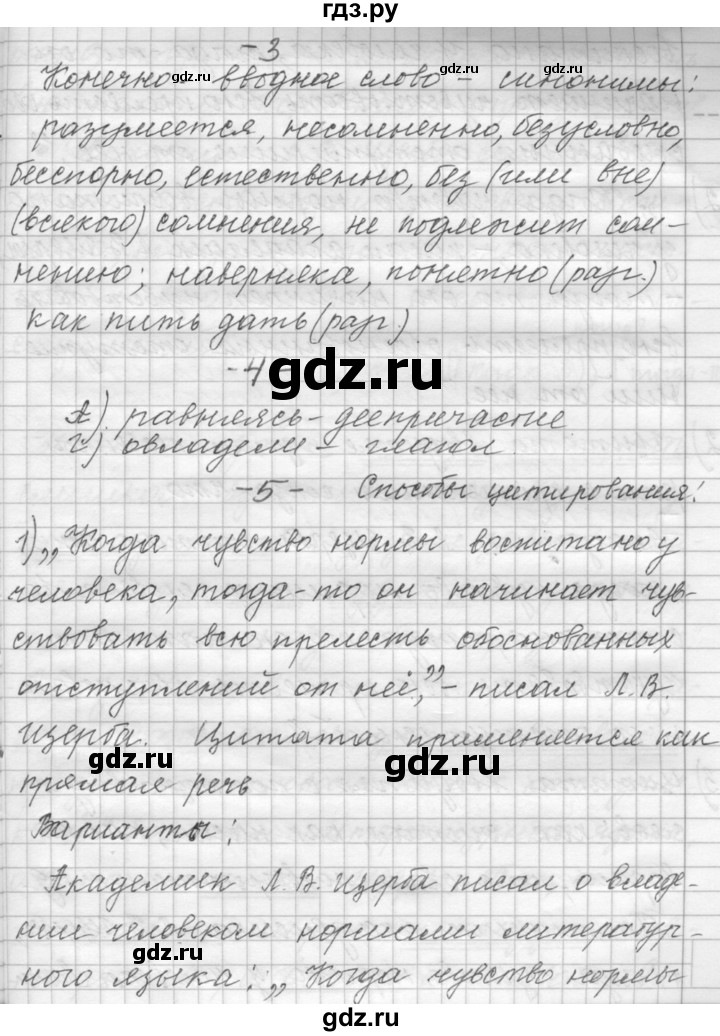 гдз.ру
-3
Конечно - вводное слово - синонимы:
разумеется, несомненно, безусловно,
бесспорно, естественно, без (или вне)
(всякого) сомнения, не подлежит сом-
нению; наверняка, понятно (разг.)
как пить дать (разг.)
-4-
А). равняясь - деепричастие
г) овладели - глагол
-5- Способы цитирования:
1) „Когда чувство нормы воспитано у
человека, тогда-то он начинает чув-
ствовать всю прелесть обоснованных
отступлений от неё,” - писал Л.В.
Щерба. Цитата применяется как
прямая речь
Варианты:
Академик Л.В. Щерба писал о владе-
нии человеком нормами литератур-
ного языка: „Когда чувство нормы
gdz.ru
gdz.ru
gdz.ru
gdz.ru
gdz.ru
gdz.ru
gdz.ru
gdz.ru
gdz.ru